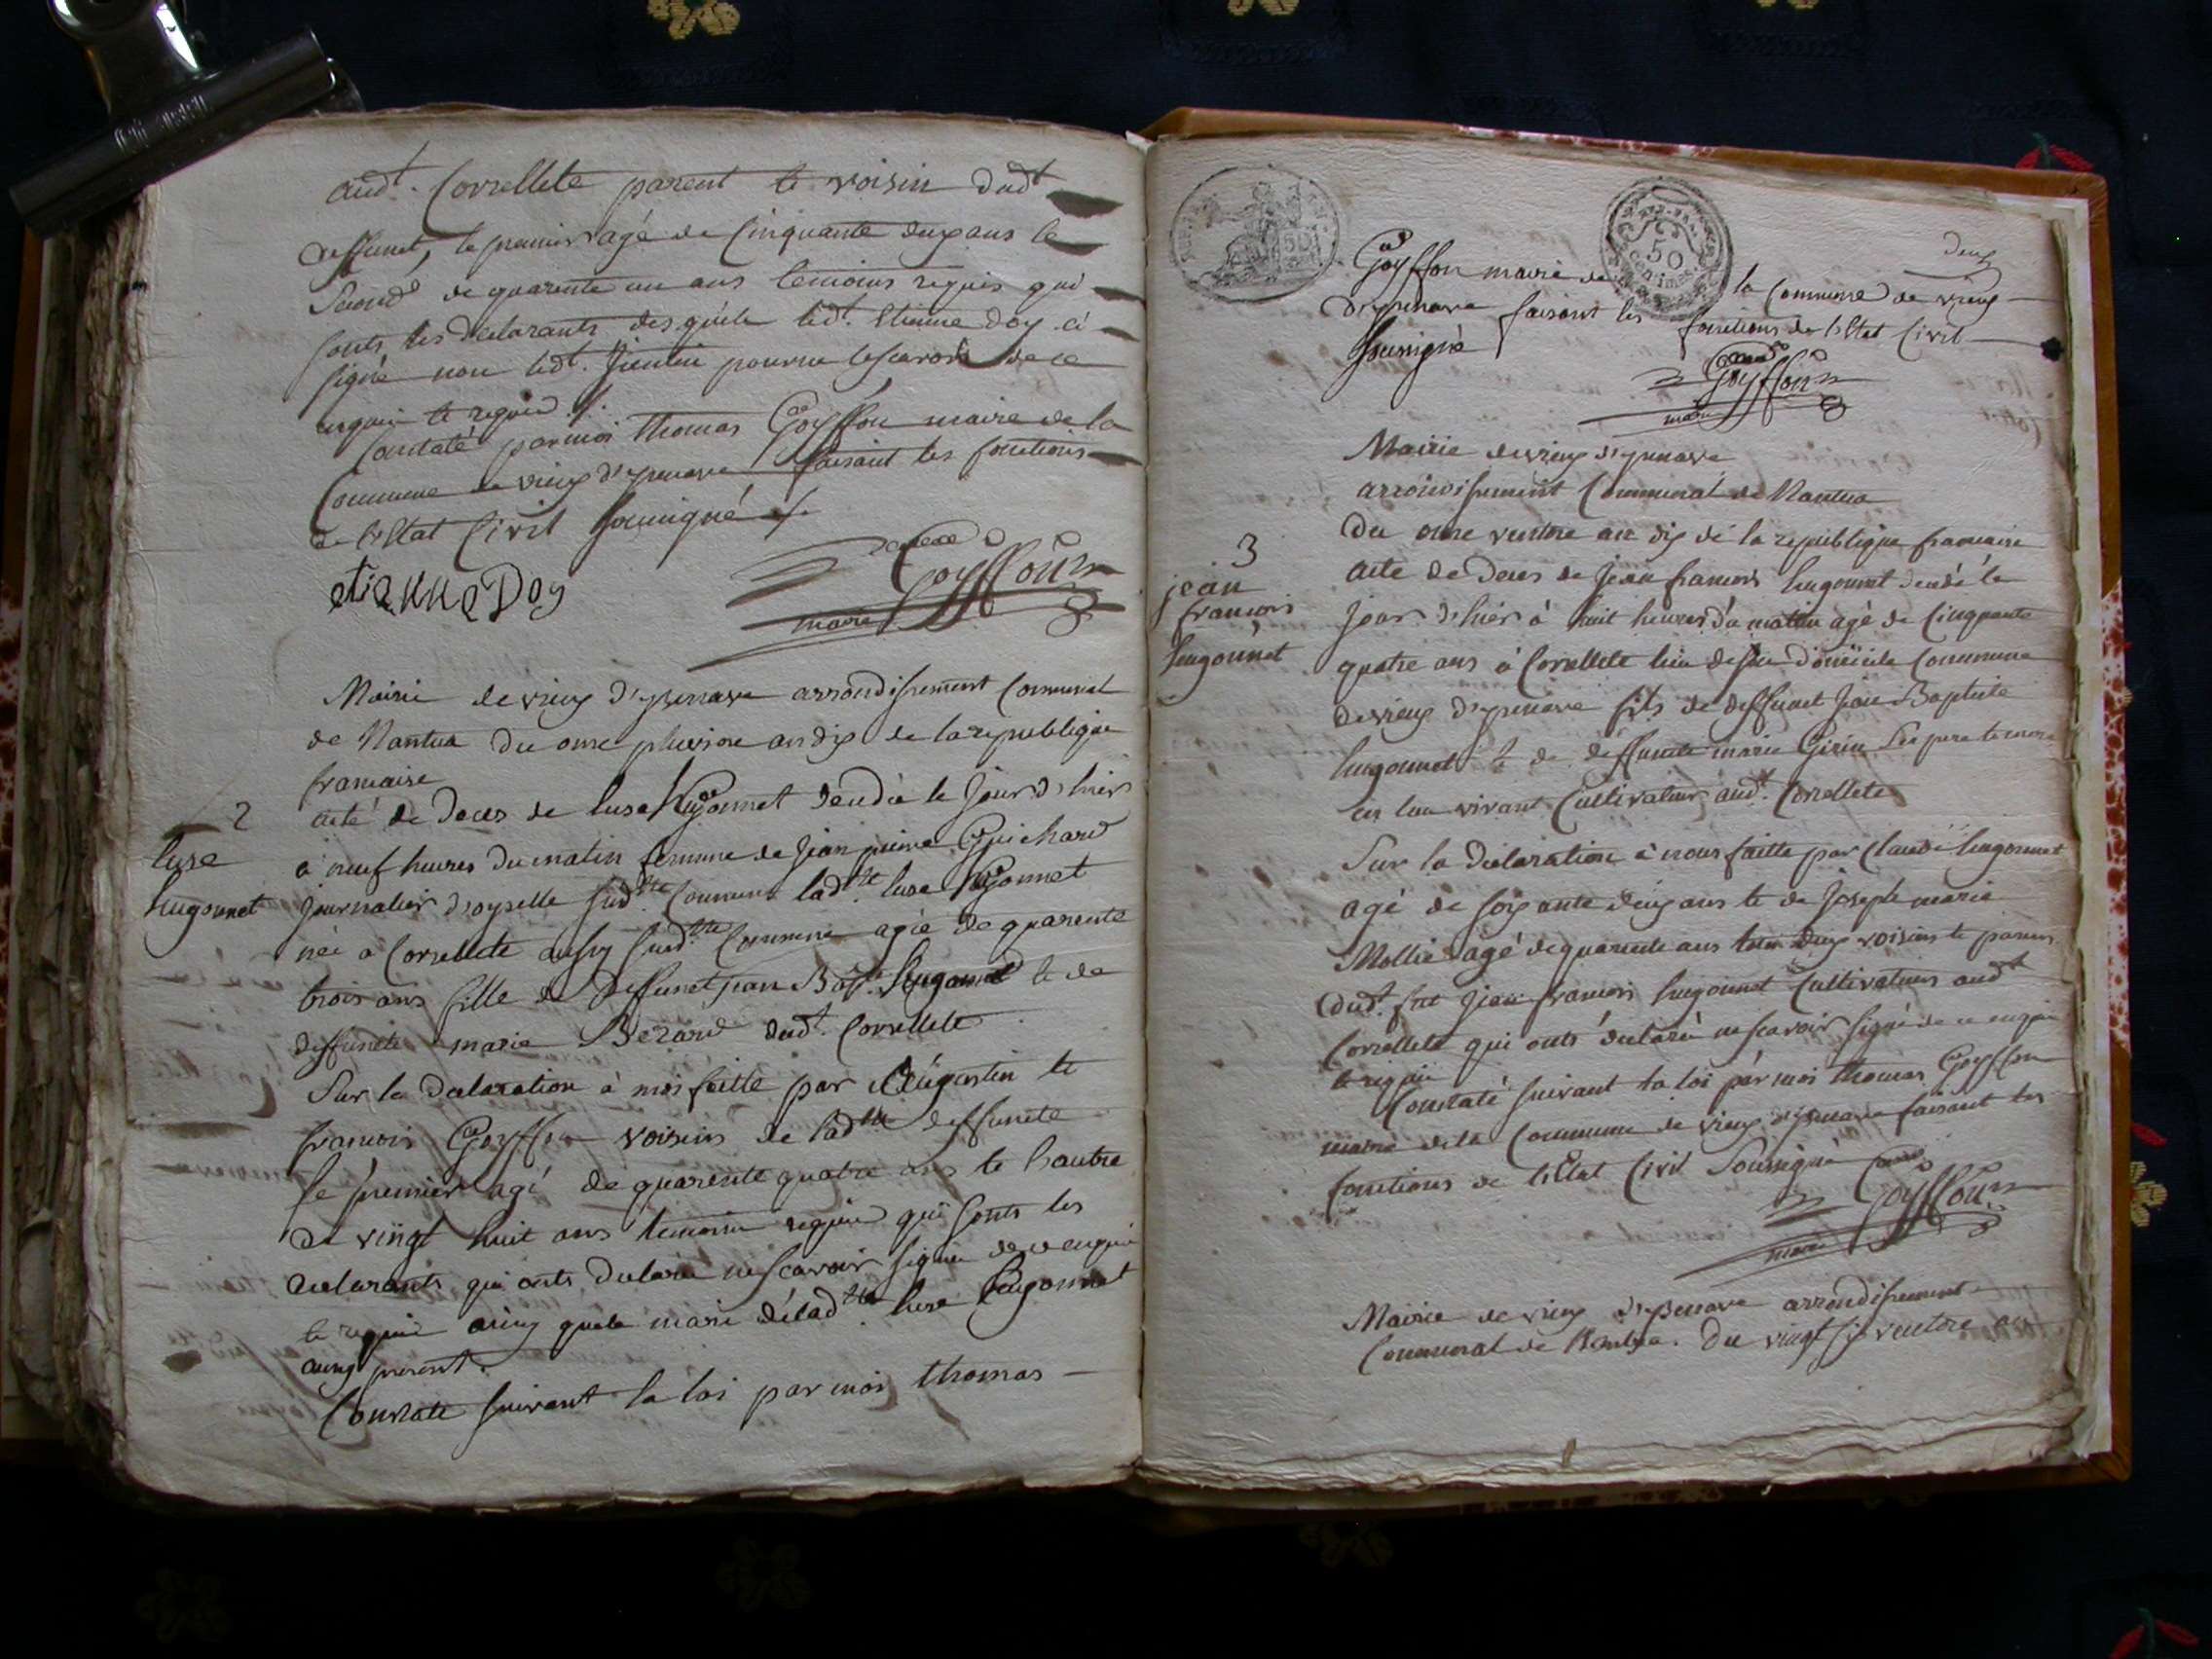 audt. Correllete parent et voisin dudt
deffunct, le premier agé de Cinquante deux ans le
Second de quarente un ans temoins requis qui
sonts les declarants desquels ledt. Etienne Doy a
signé non ledt. pour ne le scavoir de ce
enquis et requis ./.
Constaté par moi thomas Goyffon maire de la
Commune de vieux d'yzenave faisant les fonctions
de l'Etat Civil soussigné ./.
etienne Doy
Goyffon
maire
Mairie de vieux d'yzenave arrondissement Communal
de Nantua du onze pluviose an dix de la republique
francaise
2
acte de Deces de luse Hugonnet decedée le Jour d'hier
luse
à neuf heures du matin femme de Jean pierre Guichard
hugonnet
Journalier d'oyselle sudtte Commune ladtte luse Hugonnet
née a Correllete aussy sudtte Commune agée de quarente
trois ans fille de deffunct Jean Bapte. hugonnet et de
deffuncte marie Berard dudt. Correllete
Sur la declaration à moi faitte par Augustin et
francois Goyffon voisins de ladtte deffuncte
le premier agé de quarente quatre ans et l'autre
de vingt huit ans temoins requis qui sonts les
declarants qui onts declaré ne scavoir signer de ce enquis
et requis ainsy que le mari de ladtte. luse hugonnet
aussy present.
Constaté suivant la loi par moi thomas
50
50
centimes
deux
Goyffon maire de la Commune de vieux
d'yzenave faisant les fonctions de l'Etat Civil
soussigné
Goyffon
maire
Mairie de vieux d'yzenave
arrondissement Communal de Nantua
Du onze ventose an dix de la republique francaise
3
acte de Deces de Jean francois hugonnet decedé le
jean
francois
Jour d'hier à huit heures du matin agé de Cinquante
hugonnet
quatre ans à Correllete lieu de son domicile Commune
de vieux d'yzenave fils de deffunct Jean Baptiste
hugonnet et de deffuncte marie Girin ses pere et mere
en leur vivant Cultivateurs audt. Correllete
Sur la declaration à nous faitte par Claude hugonnet
agé de soixante deux ans et de Joseph marie
Mollie agé de quarente ans tous deux voisins et parens
dudt. Jean francois hugonnet Cultivateurs audt
Correllete qui onts declaré ne scavoir signé de ce enquis
et requis
Constaté suivant la loi par moi thomas Goyffon
maire de la Commune de vieux d'yzenave faisant les
fonctions de l'Etat Civil Soussigné
Goyffon
maire
Mairie de vieux d'yzenave arrondissement
Communal de Nantua. Du vingt six ventose an